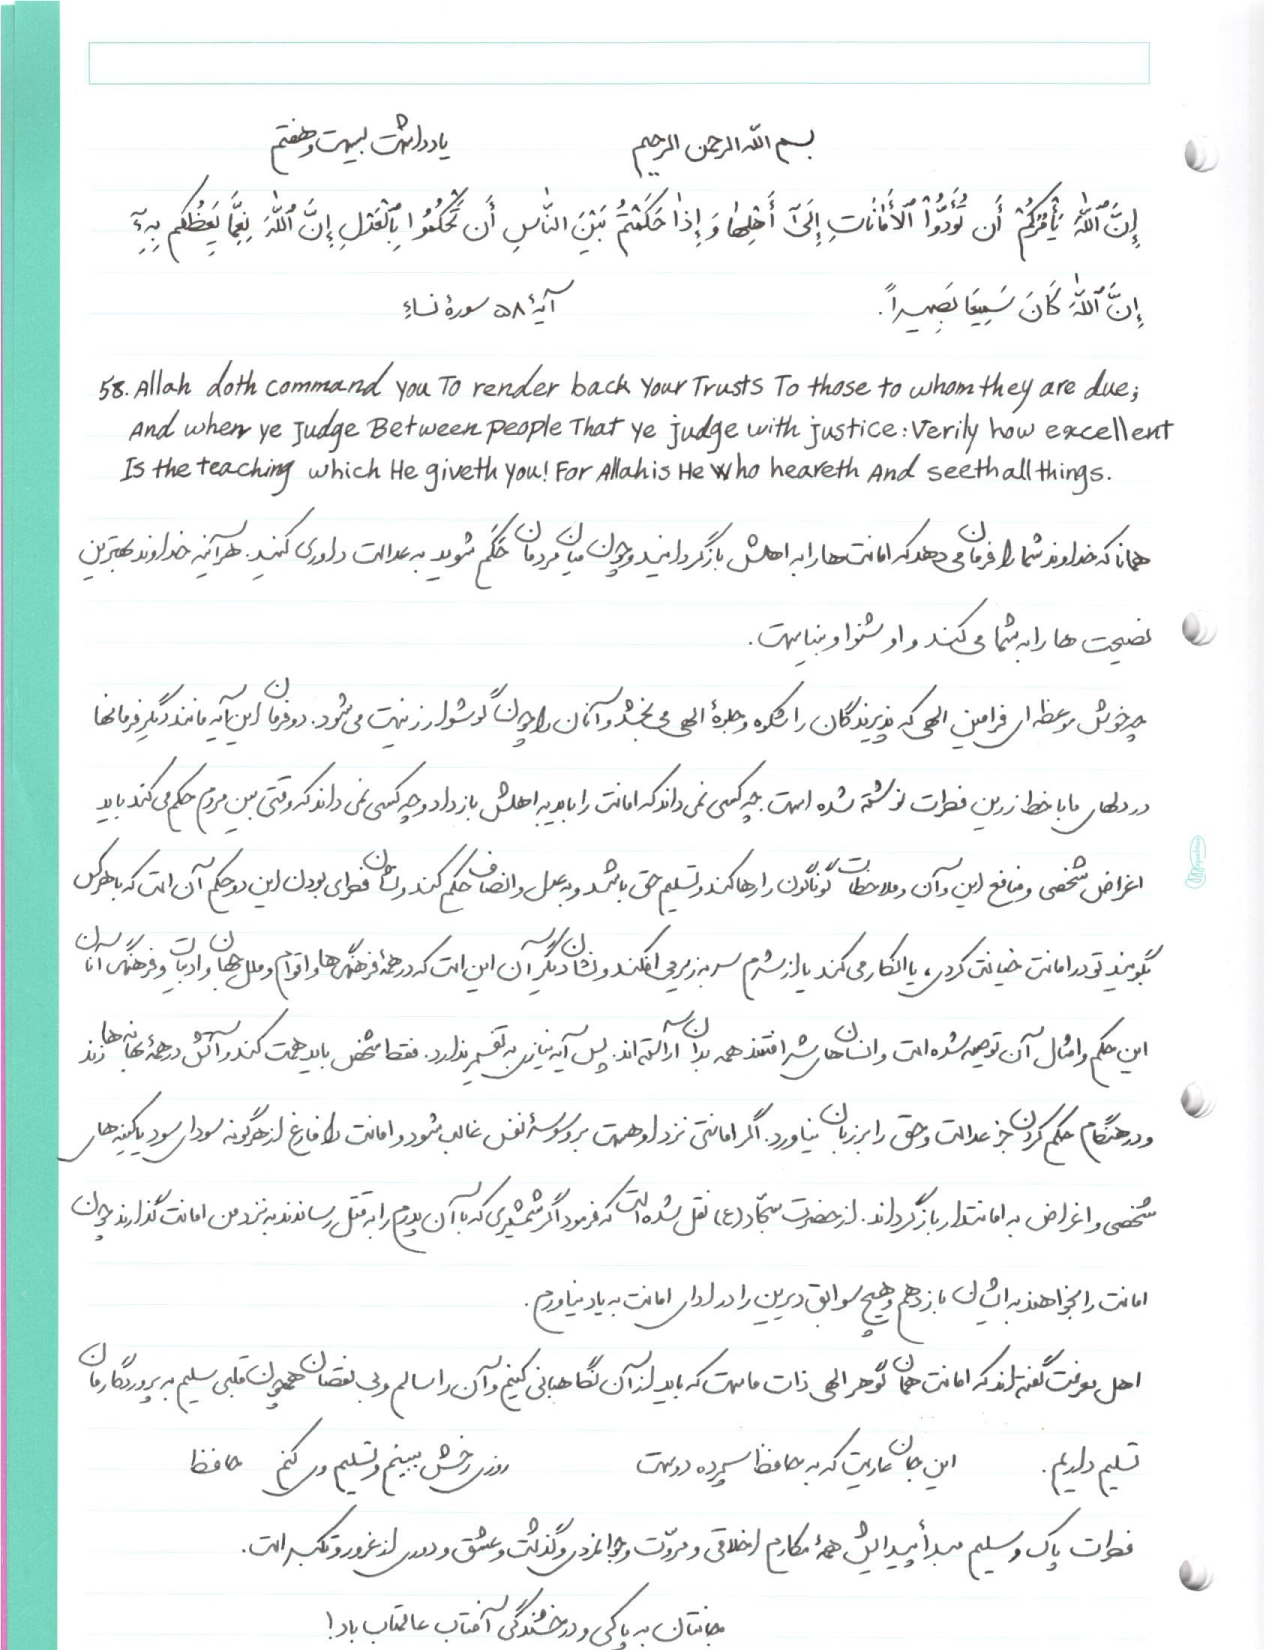 بسم الله الرحمن الرحیم یادداشت بیست و هفتم
إِنَّ ٱللَّهَ يَأْمُرُكُمْ أَن تُؤَدُّوا۟ ٱلْأَمَانَاتِ إِلَىٰٓ أَهْلِهَا وَ إِذَا حَكَمْتُمْ بَيْنَ النَّاسِ أَن تَحْكُمُوا بِٱلْعَدْلِ إِنَّ ٱللَّهَ نِعِمَّا يَعِظُكُم بِهِۦٓ
إِنَّ ٱللَّهَ كَانَ سَمِيعَا بَصِيراً. آیهٔ ۵۸ سورهٔ نساء
58. Allah doth command you To render back Your Trusts To those to whom they are due;
And when ye Judge Between people That ye judge with justice: Verily how excellent
Is the teaching which He giveth you! For Allah is He Who heareth And seeth all things.
همانا که خداوند شما را فرمان می‌دهد که امانت‌ها را به اهلش بازگردانید و چون میان مردمان حَکَم شوید به عدالت داوری کنید. هرآینه خداوند بهترین
نصیحت ها را به شما می‌کند و او شنوا و بیناست.
چه خوش موعظه‌ای فرامین الهی که پذیرندگان را شکوه و جلوهٔ الهی می‌بخشد و آنان را چون گوشوار زینت می‌شود. دو فرمان این آیه مانند دیگر فرمانها
در دلهای ما با خط زرین فطرت نوشته شده است. چه کسی نمی داند که امانت را باید به اهلش باز داد و چه کسی نمی داند که وقتی بین مردم حکم می‌کند باید
اغراض شخصی و منافع این و آن و ملاحظات گوناگون را رها کند و تسلیم حق باشد و به عدل و انصاف حکم کند و نشان فطری بودن این دو حکم آن است که با هرکس
بگویند تو در امانت خیانت کردی، یا انکار می‌کند یا از شرم سر به زیر می‌افکند و نشان دیگر آن این است که در همهٔ فرهنگ‌ها و اقوام و ملل جهان و ادبیات و فرهنگ آنان
این حکم و امثال آن توصیه شده است و انسان‌های شرافتمند همه بدان آراسته‌اند. پس آیه نیازی به تفسیر ندارد. فقط شخص باید همت کند و آتش در همهٔ بهانه‌ها زند
و در هنگام حکم کردن جز عدالت و حق را بر زبان نیاورد. اگر امانتی نزد اوهست بر وسوسهٔ نفس غالب شود و امانت را فارغ از هرگونه سودای سود یا کینه‌های
شخصی و اغراض به امانتدار بازگرداند. از حضرت سجّاد (ع) نقل شده است که فرمود اگر شمشیری که با آن پدرم را به قتل رساندند به نزد من امانت گذارند چون
امانت را بخواهند به ایشان باز دهم و هیچ سوابق دیرین را در ادای امانت به یاد نیاورم.
اهل معرفت گفته‌اند که امانت همان گوهر الهی ذات ماست که باید از آن نگاهبانی کنیم و آن را سالم و بی نقصان همچون قلبی سلیم به پروردگارمان
تسلیم داریم. این جان عاریت که به حافظ سپرده دوست روزی رخش ببینم و تسلیم وی کنم حافظ
فطرت پاک و سلیم مبدأ پیدایش همهٔ مکارم اخلاقی و مروّت و جوانمردی و گذشت و عشق و دوری از غرور و تکبّر است.
جانتان به پاکی و درخشندگی آفتاب عالمتاب باد!